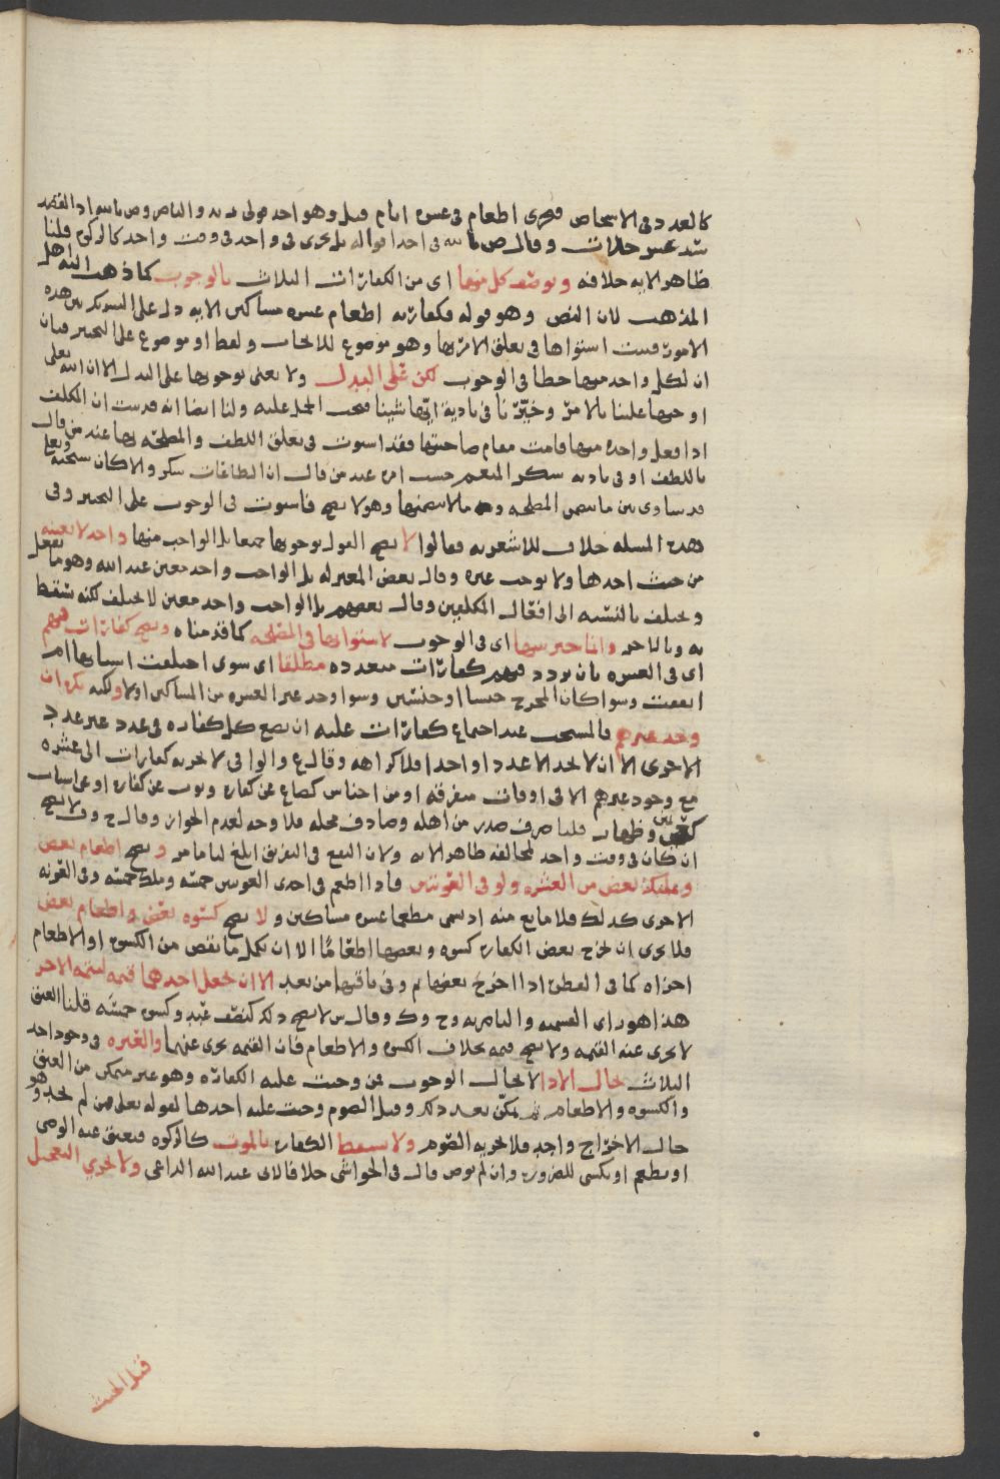 كالعدد في الاشخاص فيجزي اطعام في عشرة ايام قيل وهو احد قولي م بالله والناصر وص بالله اذ القصد
سد عشر خلات وقال ص بالله في احد اقواله بل يجزي في واحد في وقت واحد كالزكوة قلنا
ظاهر الايه خلافه ويوصف كل منها اي من الكفارات الثلاث بالوجوب كما ذهب اليه اهل
المذهب لان النص وهو قوله فكفارته اطعام عشرة مساكين الايه دل على التسوية بين هذه
الامور فثبت استواها في تعلق الامر بها وهو موضوع للايجاب ولفظ او موضوع على التخيير فبان
ان لكل واحد منها حظا في الوجوب لكن على البدل ولا يعني بوجوبها على البدل الا ان الله تعالى
اوجبها علينا بالامر وخيرنا في تادية ايها شينا فيجب الحمل عليه ولنا ايضا انه قد ثبت ان المكلف
اذا فعل واحده منها قامت مقام صاحبتها فقد استوت في تعلق اللطف والمصلحه بها عند من قال
باللطف او في تاديه شكر المنعم حسب امره عند من قال ان الطاعات شكر والا كان سبحنه وتعلى
قد ساوى بين ما يتضمن المصلحه وما لا يتضمنها وهو لا يصح فاستوت في الوجوب على التخيير وفي
هذه المسله خلاف للاشعريه فقالوا لا يصح القول بوجوبها جميعا بل الواجب منها واحد لا بعينه
من حيث احدها ولا يوجب غيره وقال بعض المعتزله بل الواجب واحد معين عند الله وهو ما يفعل
ويختلف بالنسبه الى افعال المكلفين وقال بعضهم بل الواجب واحد معين لا يختلف لكنه يسقط
به وبالاخر وانما خير بينها اي في الوجوب لاستوايها في المصلحه كما قدمناه ويصح كفارات فيهم
اي في العشرة بان يردد فيهم كفارات متعدده مطلقا اي سوى اختلفت اسبابها ام
اتفقت وسوا كان المخرج جنسا او جنسين وسوا وجد غير العشره من المساكين او لا ولكنه يكره ان
وجد غيرهم فالمستحب عند اجتماع كفارات عليه ان يضع كل كفاره في عدد غير عدد
الاخرى الا ان لا يجد الا عددا واحدا فلا كراهه وقال ع والوافي لا تجزيه كفارات الى عشره
مع وجود غيرهم الا في اوقات متفرقه او من اجناس كصاع عن كفاره وثوب عن كفاره او عن اسباب
وظهار قلنا صرف صدر من اهله وصادف محله فلا وجه لعدم الجواز وقال ح وف لا يصح
ان كان في وقت واحد لمخالفه ظاهر الايه ولان النفع في التفريق ابلغ لنا ما مر ويصح اطعام بعض
وتمليك بعض من العشره ولو في العونتين فاذا اطعم في احدى العونتين خمسه وملك خمسه وفي العونه
الاخرى كذلك فلا مانع منه اذ يسمى مطعما عشره مساكين ولا يصح كسوه بعض واطعام بعض
فلا يجزي ان يخرج بعض الكفاره كسوه وبعضها اطعاما الا ان يكمل ما نقص من الكسوه او الاطعام
اجزاه كما في الفطره اذا اخرج بعضها ثم وفى باقيها من بعد الا ان يجعل احدهما قيمه تتمه الاخر
هذا هو راي القسميه والناصريه وح وك وقال س لا يصح ذلك كنصف عبد وكسوه خمسه قلنا العتق
لا تجزي عنه القيمه ولا يصح قيمه بخلاف الكسوه والاطعام فان القيمه تجزي عنهما والعبره في وجود احد
الثلاث بحال الادا لا بحال الوجوب فمن وجبت عليه الكفاره وهو غير متمكن من العتق
والكسوه والاطعام ثم تمكن بعد ذلك وقبل الصوم وجب عليه احدها لقوله تعلى فمن لم يجد وهو
حال الاخراج واجد فلا يجزيه الصوم ولا تسقط الكفاره بالموت كالزكوه فيعتق عنه الوصي
او يطعم او يكسي للضروره وان لم يوص قال في الحواشي خلافا لابي عبد الله الداعي ولا يجزي التعجيل
قبل الحنث